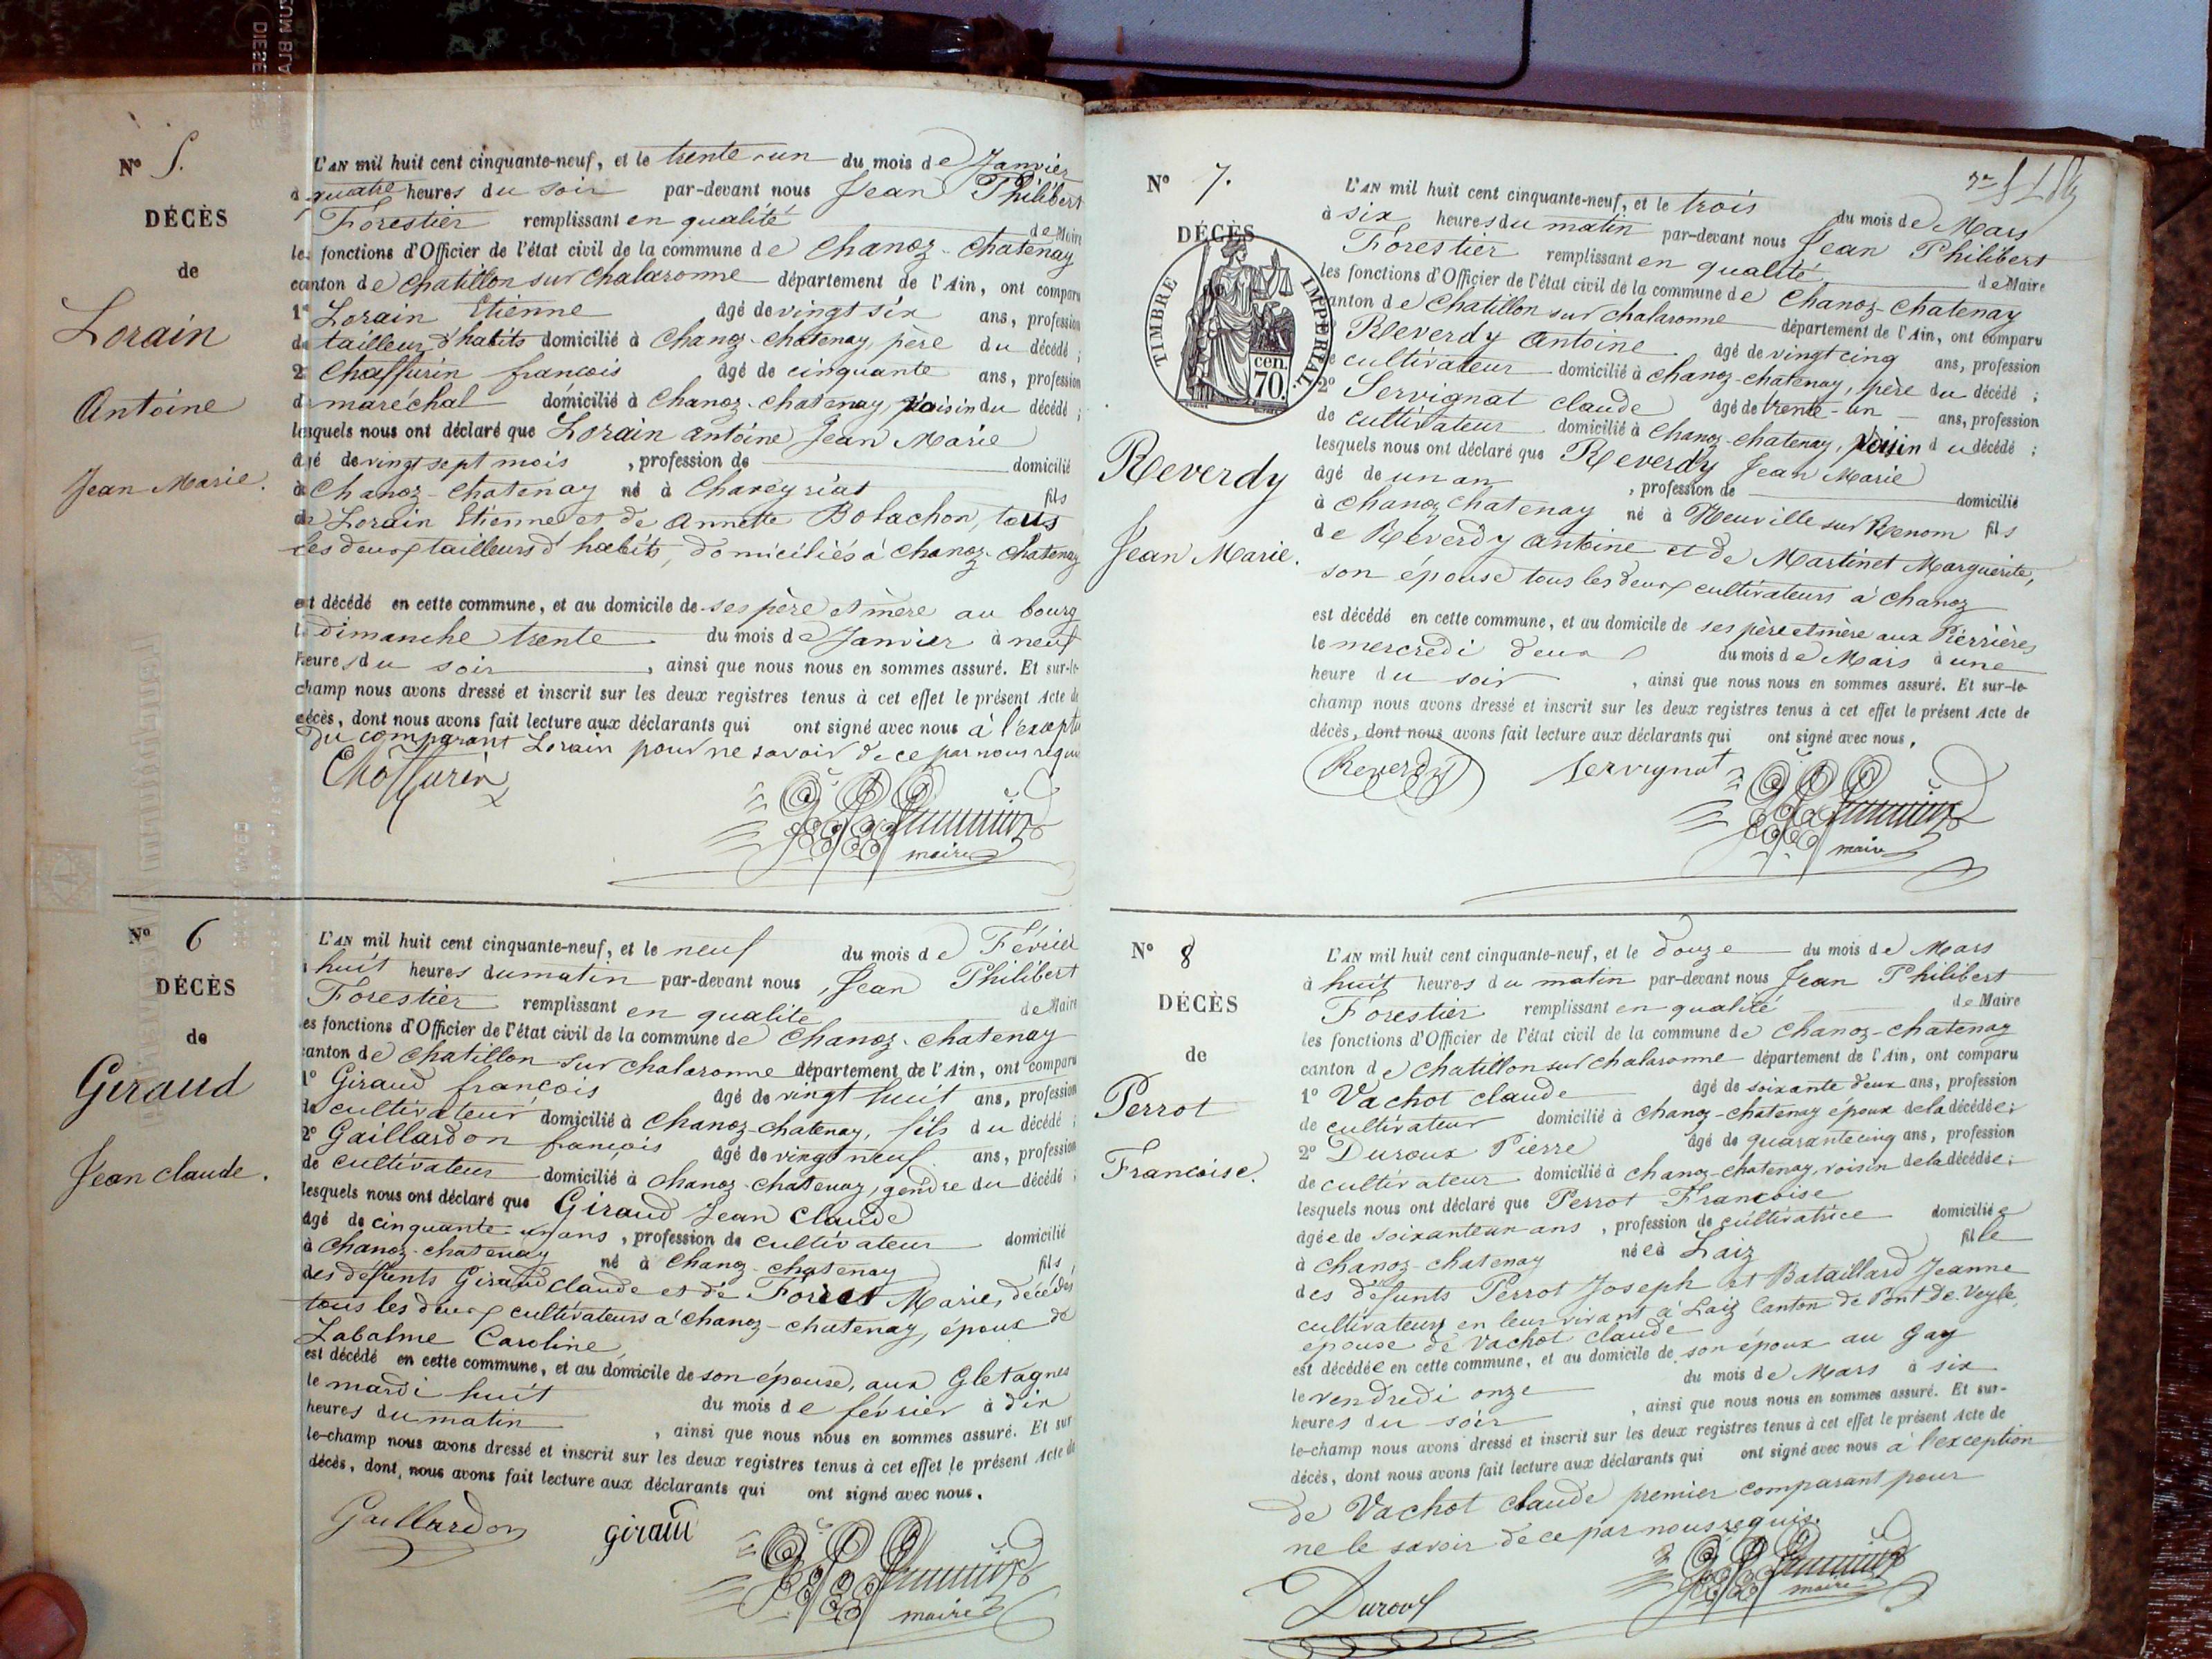 N° 5.
DÉCÈS
de
Lorain
Antoine
Jean Marie.
L'AN mil huit cent cinquante-neuf, et le trente-un du mois de Janvier
à quatre heures du soir par-devant nous Jean Philibert
Forestier remplissant en qualité de Maire
les fonctions d'Officier de l'état civil de la commune de Chanoz-Chatenay
canton de Chatillon sur Chalaronne département de l'Ain, ont comparu
1° Lorain Etienne âgé de vingt six ans, profession
de tailleur d'habits domicilié à Chanoz-chatenay, père du décédé ;
2° Chaffurin francois âgé de cinquante ans, profession
de maréchal domicilié à Chanoz-chatenay, voisin du décédé ;
lesquels nous ont déclaré que Lorain antoine Jean Marie
âgé de vingt sept mois , profession de domicilié
à Chanoz-Chatenay né à Chaveyriat fils
de Lorain Etienne et de Annette Bolachon, tous
les deux tailleurs d'habits, domiciliés à chanoz-chatenay
est décédé en cette commune, et au domicile de ses père et mère au bourg
le dimanche trente du mois de Janvier à neuf
heures du soir , ainsi que nous nous en sommes assuré. Et sur-le-
champ nous avons dressé et inscrit sur les deux registres tenus à cet effet le présent Acte de
décès, dont nous avons fait lecture aux déclarants qui ont signé avec nous à l'exeptn
du comparant Lorain pour ne savoir de ce par nous requis
Choffurin
maire
N° 6
DÉCÈS
de
Giraud
Jean claude.
L'AN mil huit cent cinquante-neuf, et le neuf du mois de Février
à huit heures du matin par-devant nous, Jean Philibert
Forestier remplissant en qualité de Maire
les fonctions d'Officier de l'état civil de la commune de Chanoz-chatenay
canton de Chatillon sur chalaronne département de l'Ain, ont comparu
1° Giraud françois âgé de vingt huit ans, profession
de cultivateur domicilié à Chanoz-chatenay, fils du décédé ;
2° Gaillardon françois âgé de vingt neuf ans, profession
de cultivateur domicilié à chanoz-chatenay, gendre du décédé ;
lesquels nous ont déclaré que Giraud Jean Claude
âgé de cinquante un ans , profession de cultivateur domicilié
à Chanoz-chatenay né à Chanoz-chatenay fils
des défunts Giraud claude et de Foret Marie, décédés
tous les deux cultivateurs à chanoz-chatenay, époux de
Labalme Caroline
est décédé en cette commune, et au domicile de son épouse, aux Gletagnes
le mardi huit du mois de février à dix
heures du matin , ainsi que nous nous en sommes assuré. Et sur
le-champ nous avons dressé et inscrit sur les deux registres tenus à cet effet le présent Acte de
décès, dont nous avons fait lecture aux déclarants qui ont signé avec nous.
Gaillardon giraud
maire
N° 7.
DÉCÈS
TIMBRE IMPÉRIAL.
cen.
70.
Reverdy
Jean Marie.
L'AN mil huit cent cinquante-neuf, et le trois du mois de Mars
à six heures du matin par-devant nous Jean Philibert
Forestier remplissant en qualité de Maire
les fonctions d'Officier de l'état civil de la commune de Chanoz-chatenay
canton de Chatillon sur chalaronne département de l'Ain, ont comparu
Reverdy Antoine âgé de vingt cinq ans, profession
de cultivateur domicilié à chanoz-chatenay, père du décédé ;
2° Servignat claude âgé de trente-un ans, profession
de cultivateur domicilié à Chanoz-chatenay, voisin du décédé ;
lesquels nous ont déclaré que Reverdy Jean Marie
âgé de un an , profession de domicilié
à chanoz chatenay né à Neuville sur Renom fils
de Reverdy antoine et de Martinet Marguerite,
son épouse tous les deux cultivateurs à chanoz
est décédé en cette commune, et au domicile de ses père et mère aux Pierrières
le mercredi deux du mois de Mars à une
heure du soir , ainsi que nous nous en sommes assuré. Et sur-le-
champ nous avons dressé et inscrit sur les deux registres tenus à cet effet le présent Acte de
décès, dont nous avons fait lecture aux déclarants qui ont signé avec nous.
Reverdy Servignat
maire
N° 8
DÉCÈS
de
Perrot
Francoise.
L'AN mil huit cent cinquante-neuf, et le douze du mois de Mars
à huit heures du matin par-devant nous Jean Philibert
Forestier remplissant en qualité de Maire
les fonctions d'Officier de l'état civil de la commune de Chanoz-chatenay
canton de Chatillon sur Chalaronne département de l'Ain, ont comparu
1° Vachot claude âgé de soixante deux ans, profession
de cultivateur domicilié à Chanoz-chatenay époux de la décédée ;
2° Duroux Pierre âgé de quarante cinq ans, profession
de cultivateur domicilié à chanoz-chatenay, voisin de la décédée ;
lesquels nous ont déclaré que Perrot Francoise
âgée de soixante un ans , profession de cultivatrice domiciliée
à chanoz-chatenay née à Laiz fille
des défunts Perrot Joseph et Bataillard Jeanne
cultivateurs en leur vivant à Laiz Canton de Pont De Veyle,
épouse de Vachot claude
est décédée en cette commune, et au domicile de son époux au Gay
le vendredi onze du mois de Mars à six
heures du soir , ainsi que nous nous en sommes assuré. Et sur-
le-champ nous avons dressé et inscrit sur les deux registres tenus à cet effet le présent Acte de
décès, dont nous avons fait lecture aux déclarants qui ont signé avec nous à l'exception
de Vachot claude premier comparant pour
ne le savoir de ce par nous requis.
Duroux
maire